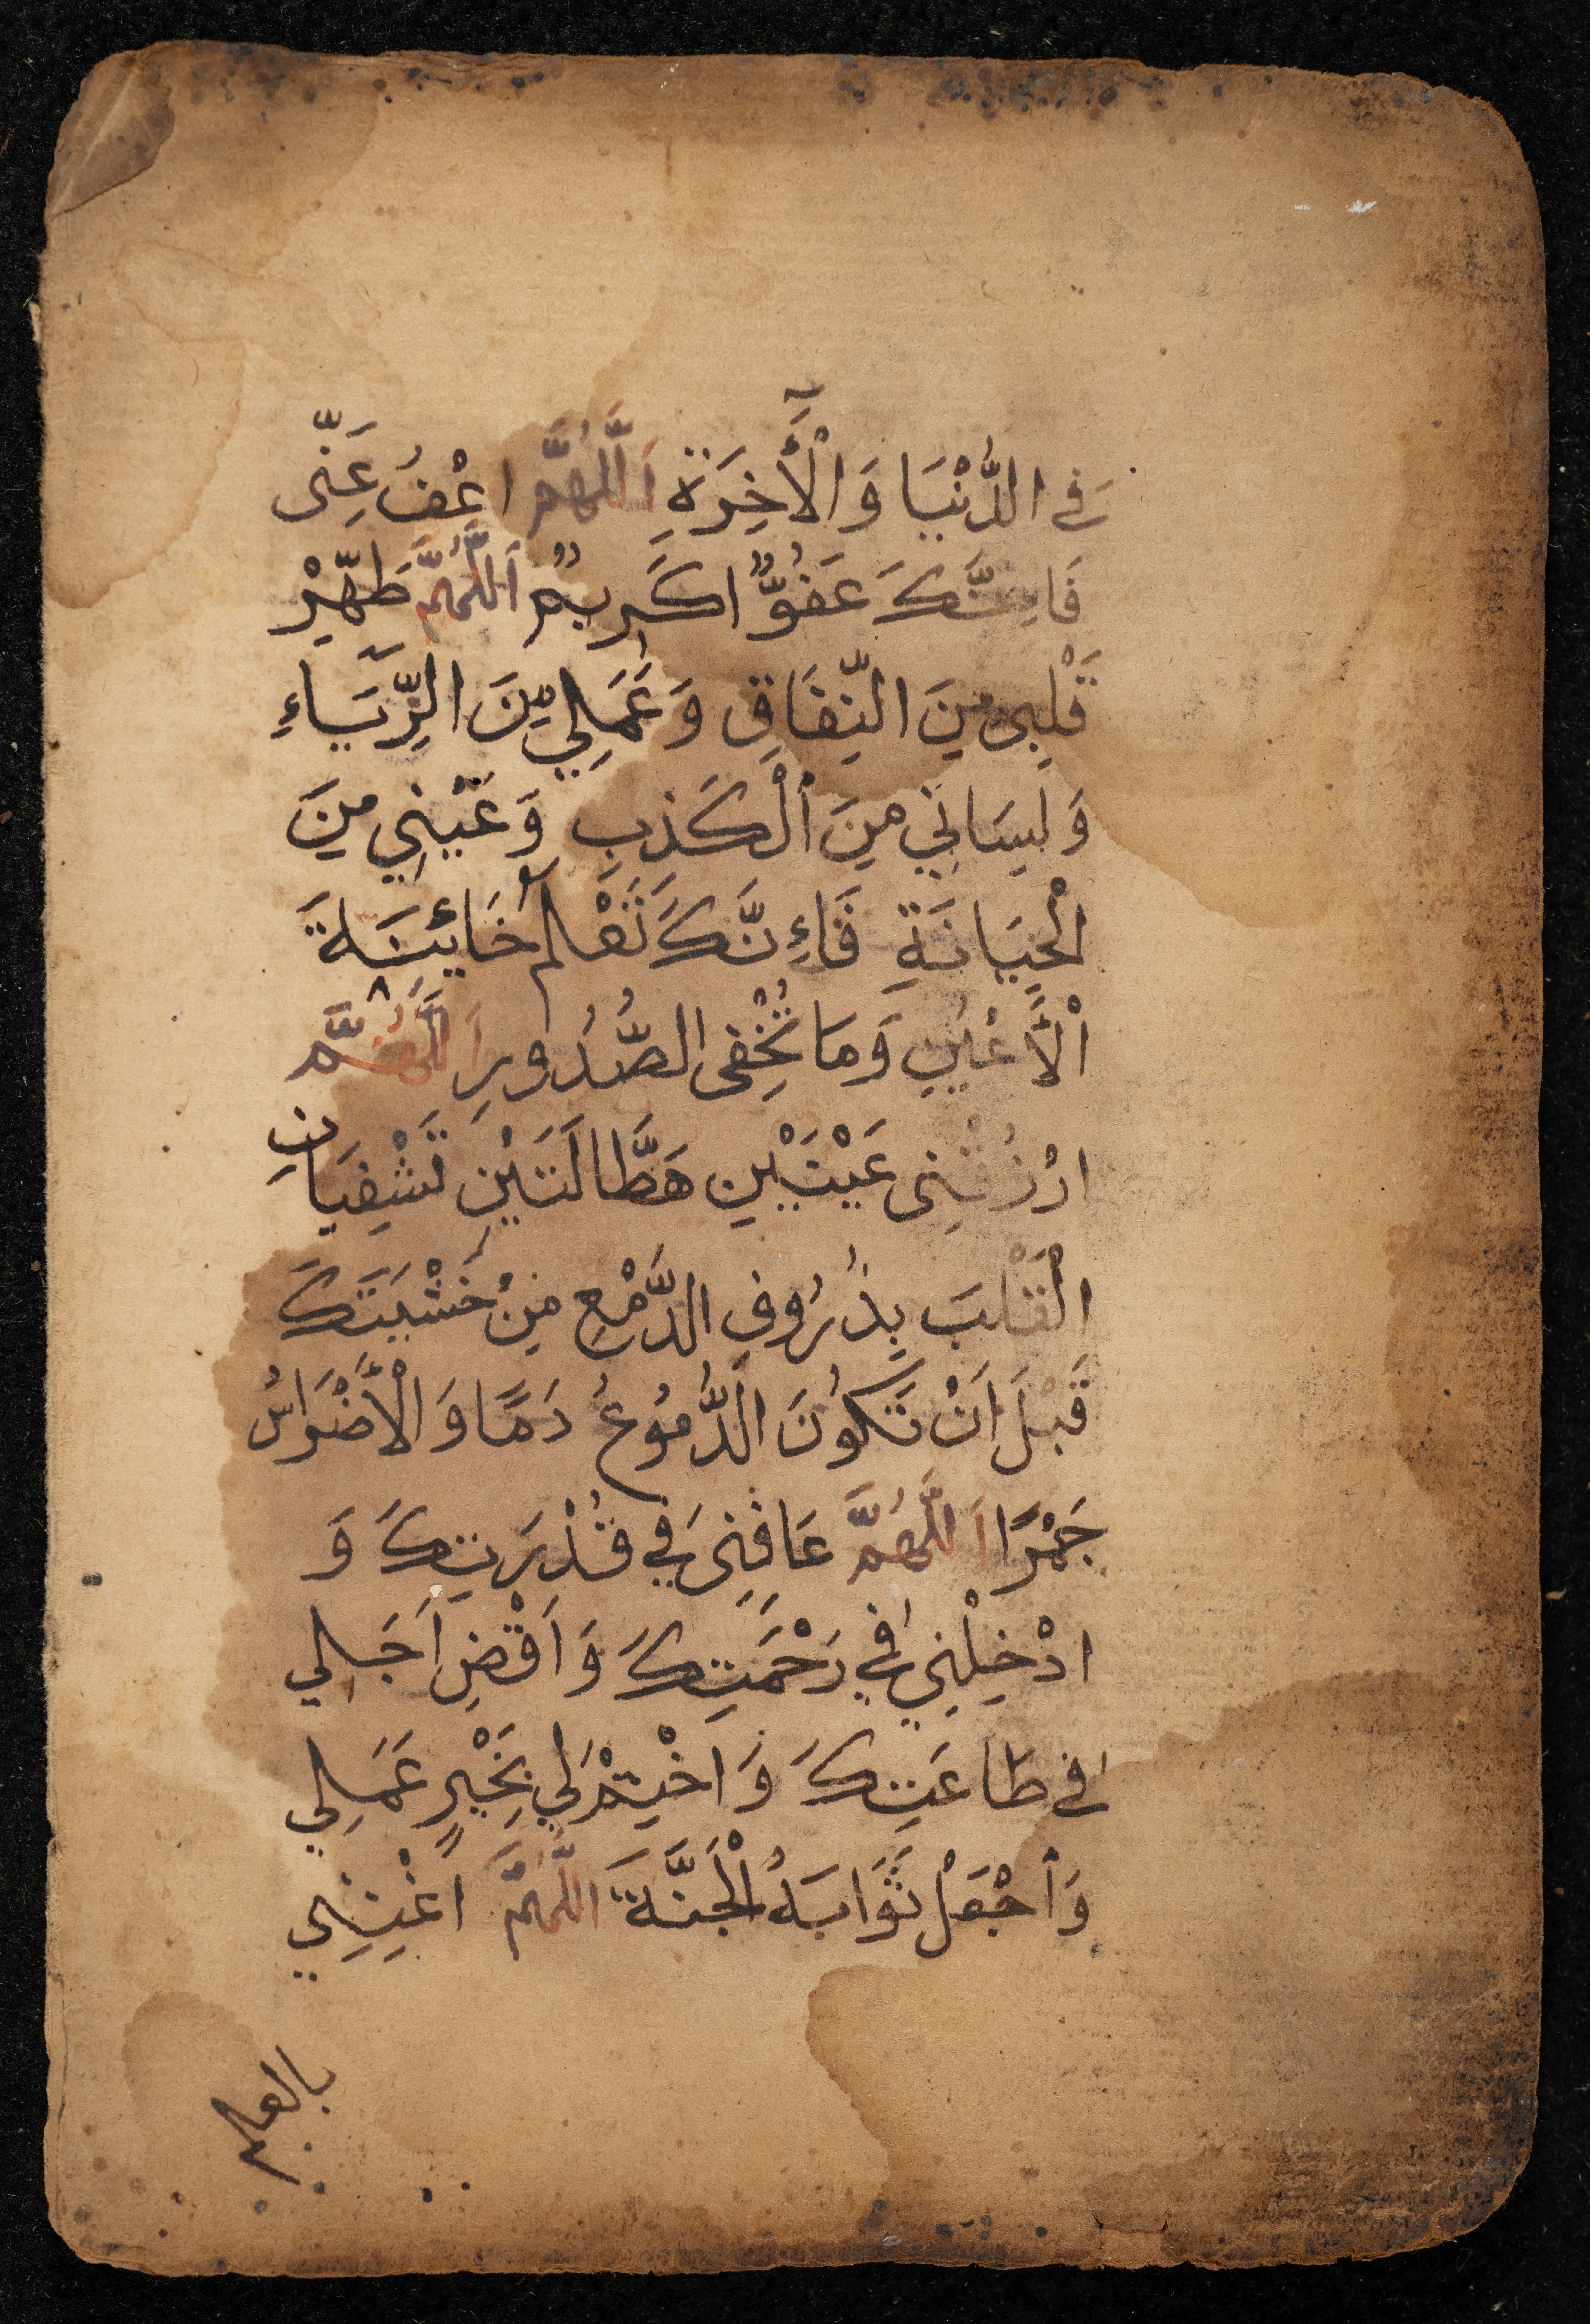 فِي الدُّنْيَا وَالْأٓخِرَةِ اَللّٰهُمَّ اعْفُ عَنِّى
فَاِنَّكَ عَفُوٌّا كَرِيمٌ اَللّٰهُمَّ طَهِّرْ
قَلْبِى مِنَ النِّفَاقِ وَعَمَلِي مِّنَ الرِّيَاءِ
وَلِسَانِي مِنَ ٱلْكَذِبِ وَعَيْنِي مِنَ
الْخِيَانَةِ فَاءِنَّكَ تَعْلَمُ خَائِنَةَ
اْلأَعْيُنِ وَمَا تُخْفِى الصُّدُورِ اَللّٰهُمَّ
ارْزُقْنِى عَيْنَيْنِ هَطَّالَتَيْنِ تَشْفِيَانِ
الْقَلْبَ بِذُرُوفِ الدَّمْعِ مِنْ خَشْيَتِكَ
قَبْلَ اَنْ تَكُونَ الدُّمُوعُ دَمًا وَالْأَضْرَاسُ
جَمْرًا اَللّٰهُمَّ عَافِنِى فِي قُدْرَتِكَ وَ
ادْخِلْنِي فِي رَحْمَتِكَ وَاَقْضِ اَجَلِي
فِي طَاعَتِكَ وَاخْتِمْ لِي بِخَيْرٍ عَمَلِي
وَٱجْعَلْ ثَوَابَهُ الْجَنَّةَ اللّٰهُمَّ اَغْنِنِي
بالعلم